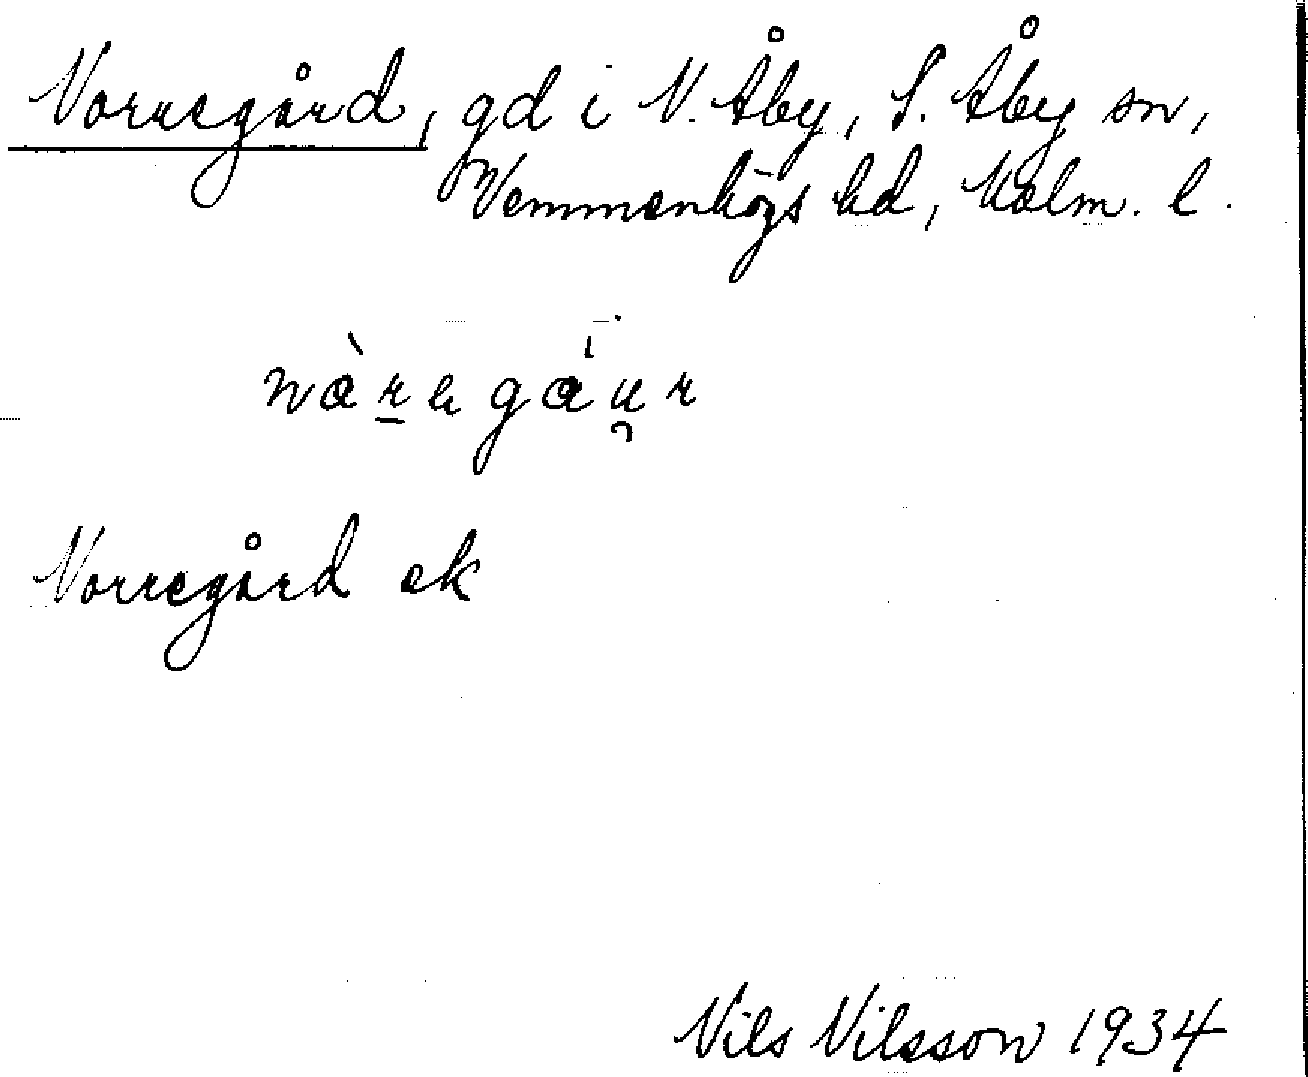 Norregård, gd i N. Åby, S. Åby sn,
Vemmenhögs hd, Malm. l.
Norregård ek
Nils Nilsson 1934